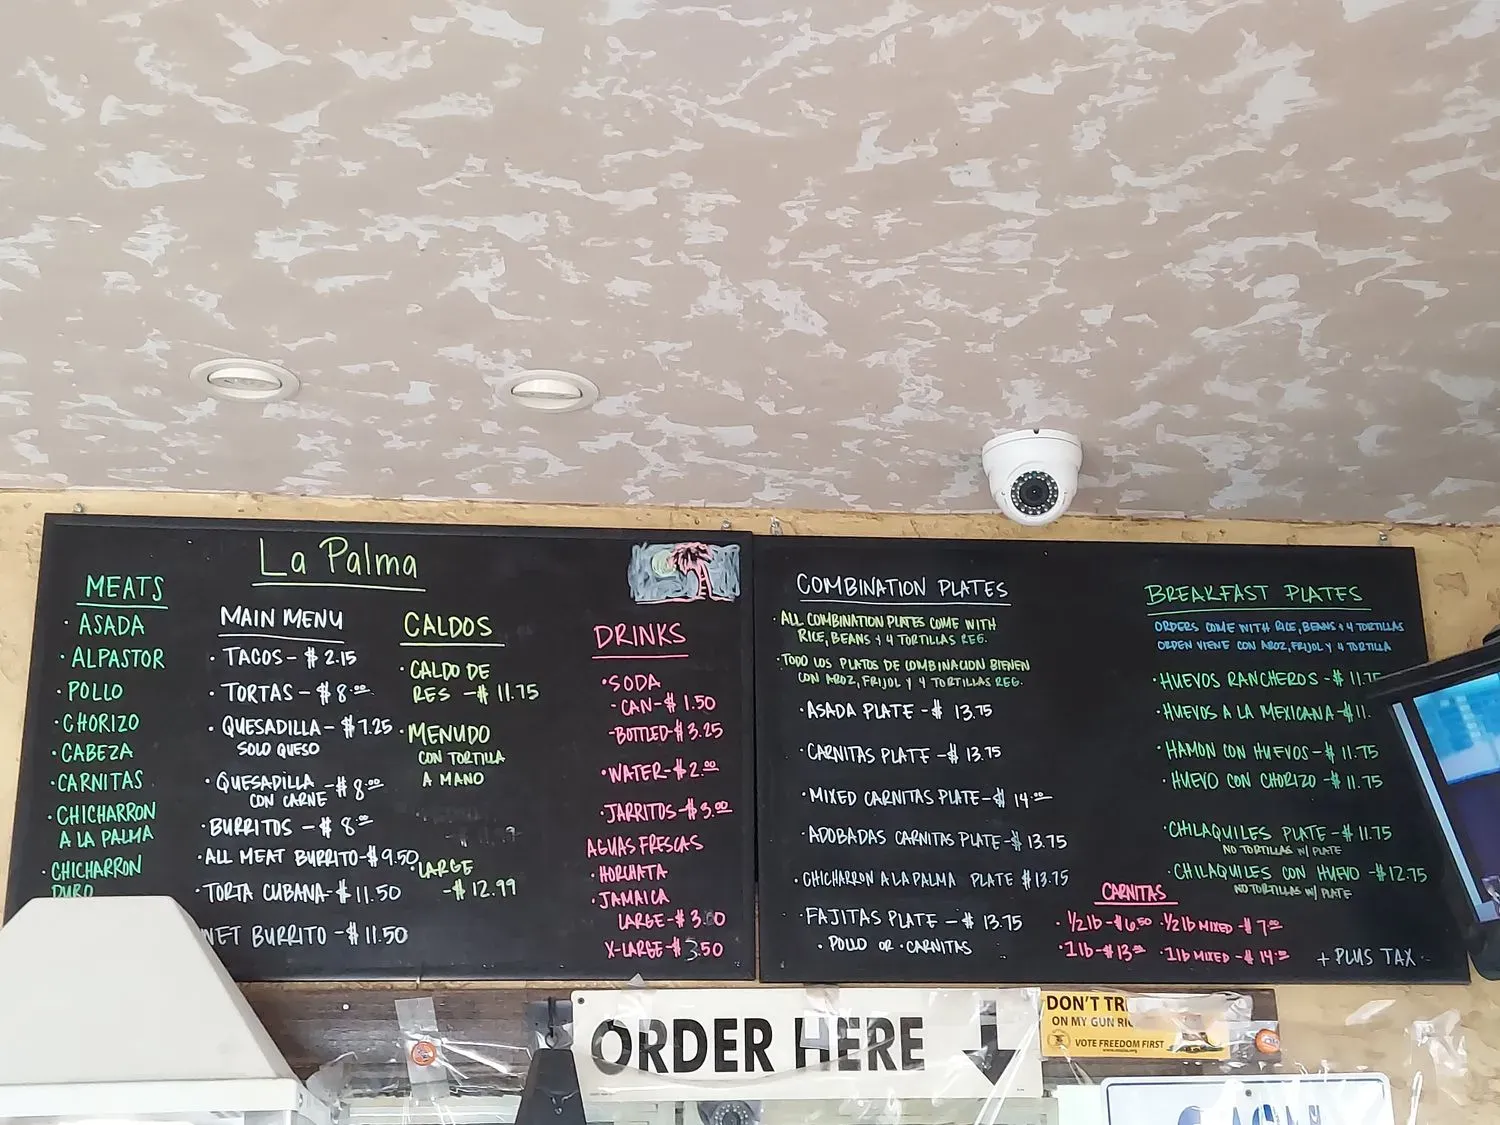 La Palma
MEATS
· ASADA
· ALPASTOR
· POLLO
· CHORIZO
· CABEZA
· CARNITAS
· CHICHARRON
A LA PALMA
· CHICHARRON
DURO
MAIN MENU
· TACOS - $ 2.15
· TORTAS - $ 8.00
· QUESADILLA - $ 7.25
SOLO QUESO
· QUESADILLA
CON CARNE - $ 8.00
· BURRITOS - $ 8.00
· ALL MEAT BURRITO - $ 9.50
· TORTA CUBANA - $ 11.50
WET BURRITO - $ 11.50
CALDOS
· CALDO DE
RES - $ 11.75
· MENUDO
CON TORTILLA
A MANO
· LARGE
- $ 12.99
DRINKS
· SODA
- CAN - $ 1.50
- BOTTLED - $ 3.25
· WATER - $ 2.00
· JARRITOS - $ 3.00
AGUAS FRESCAS
· HORCHATA
· JAMAICA
LARGE - $ 3.00
X-LARGE - $ 3.50
COMBINATION PLATES
· ALL COMBINATION PLATES COME WITH
RICE, BEANS + 4 TORTILLAS REG.
· TODO LOS PLATOS DE COMBINACION BIENEN
CON AROZ, FRIJOL Y 4 TORTILLAS REG.
· ASADA PLATE - $ 13.75
· CARNITAS PLATE - $ 13.75
· MIXED CARNITAS PLATE - $ 14.00
· ADOBADAS CARNITAS PLATE - $ 13.75
· CHICHARRON A LA PALMA PLATE $ 13.75
· FAJITAS PLATE - $ 13.75
· POLLO OR · CARNITAS
BREAKFAST PLATES
ORDERS COME WITH RICE, BEANS + 4 TORTILLAS
ORDEN VIENE CON AROZ, FRIJOL Y 4 TORTILLA
· HUEVOS RANCHEROS - $ 11.75
· HUEVOS A LA MEXICANA - $ 11.
· HAMON CON HUEVOS - $ 11.75
· HUEVO CON CHORIZO - $ 11.75
· CHILAQUILES PLATE - $ 11.75
NO TORTILLAS W/ PLATE
· CHILAQUILES CON HUEVO - $ 12.75
NO TORTILLAS W/ PLATE
CARNITAS
· 1/2 lb - $ 6.50 · 1/2 lb MIXED - $ 7.00
· 1 lb - $ 13.00 · 1 lb MIXED - $ 14.00
+ PLUS TAX
ORDER HERE
DON'T TR
ON MY GUN RIG
VOTE FREEDOM FIRST